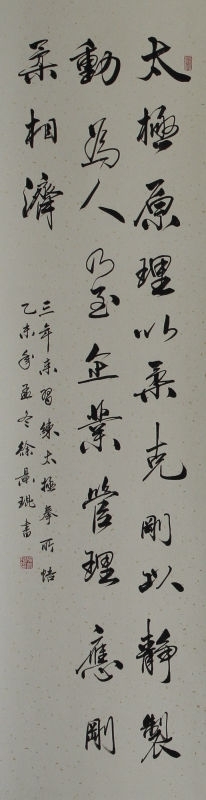 太極原理以柔克剛以靜製
動為人乃至企業管理應剛
柔相濟
三年來習練太極拳所悟
乙未年孟冬徐景珧書